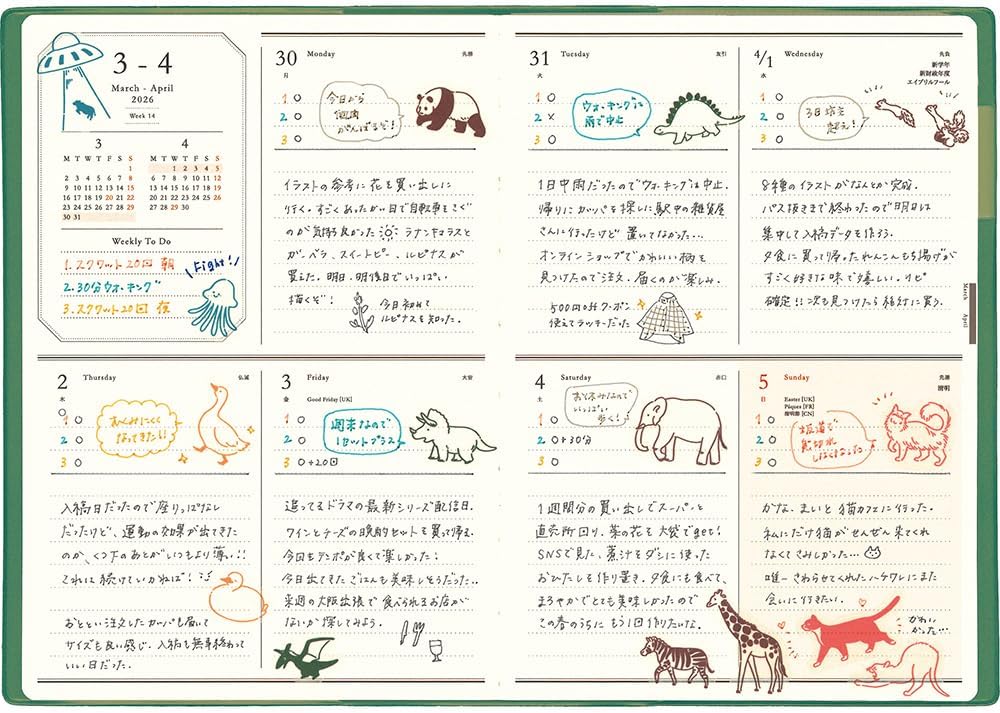 3 - 4
March - April
2026
Week 14
3
M T W T F S S
1
2 3 4 5 6 7 8
9 10 11 12 13 14 15
16 17 18 19 20 21 22
23 24 25 26 27 28 29
30 31
4
M T W T F S S
1 2 3 4 5
6 7 8 9 10 11 12
13 14 15 16 17 18 19
20 21 22 23 24 25 26
27 28 29 30
Weekly To Do
1.スクワット20回 朝
2.30分ウォーキング
3.スクワット20回 夜
Fight!
30 Monday 先勝
月
1 ○
2 ○
3 ○
今日から
1週間
がんばるぞ!
イラストの参考に花を買い出しに
行く。すごくあったかい日で自転車をこぐ
のが気持ち良かった ラナンキュラスと
ガーベラ、スイートピー、ルピナスが
買えた。明日、明後日でいっぱい
描くぞ!
今日初めて
ルピナスを知った。
31 Tuesday 友引
火
1 ○
2 ×
3 ○
ウォーキングは
雨で中止
1日中雨だったのでウォーキングは中止。
帰りにカッパを探しに駅中の雑貨屋
さんに行ったけど置いてなかった…
オンラインショップでかわいい柄を
見つけたので注文。届くのが楽しみ。
500円offクーポン
使えてラッキーだった
4/1 Wednesday 先負
水
新学年
新財政年度
エイプリルフール
1 ○
2 ○
3 ○
3日坊主
超え!
8種のイラストがなんとか完成。
バス抜きまで終わったので明日は
集中して入稿データを作ろう。
夕食に買って帰ったれんこんもち揚げが
すごく好きな味で嬉しい。リピ
確定!!次も見つけたら絶対に買う。
March April
2 Thursday 仏滅
木
1 ○
2 ○
3 ○
むくみにくく
なってきた!!
入稿日だったので座りっぱなし
だったけど、運動の効果が出てきた
のか、くつ下のあとがいつもより薄い!!
これは続けていかねば!
おととい注文したカッパも届いて
サイズも良い感じ。入稿も無事終わって
いい日だった。
3 Friday 大安
金 Good Friday [UK]
1 ○
2 ○
3 ○+20回
週末なので
1セットプラス
追ってるドラマの最新シリーズ配信日。
ワインとチーズの晩酌セットを買って帰る。
今回もテンポが良くて楽しかった!
今日出てきたごはんも美味しそうだった…
来週の大阪出張で食べられるお店が
ないか探してみよう。
4 Saturday 赤口
土
1 ○
2 ○+30分
3 ○
お休みなので
いっぱい
歩く!
1週間分の買い出しでスーパーと
直売所回り。菜の花を大袋でget!
SNSで見た、煮汁をダシに使った
おひたしを作り置き。夕食にも食べて、
まろやかでとても美味しかったので
この春のうちにもう1回作りたいな。
5 Sunday 先勝
日 清明
Easter [UK]
Pâques [FR]
清明節 [CN]
1 ○
2 ○
3 ○
坂道で
息切れ
しなくなった
かな、まいと猫カフェに行った。
私にだけ猫がぜんぜん来てくれ
なくてさみしかった…
唯一さわらせてくれたハチワレにまた
会いに行きたい。
かわい
かった…